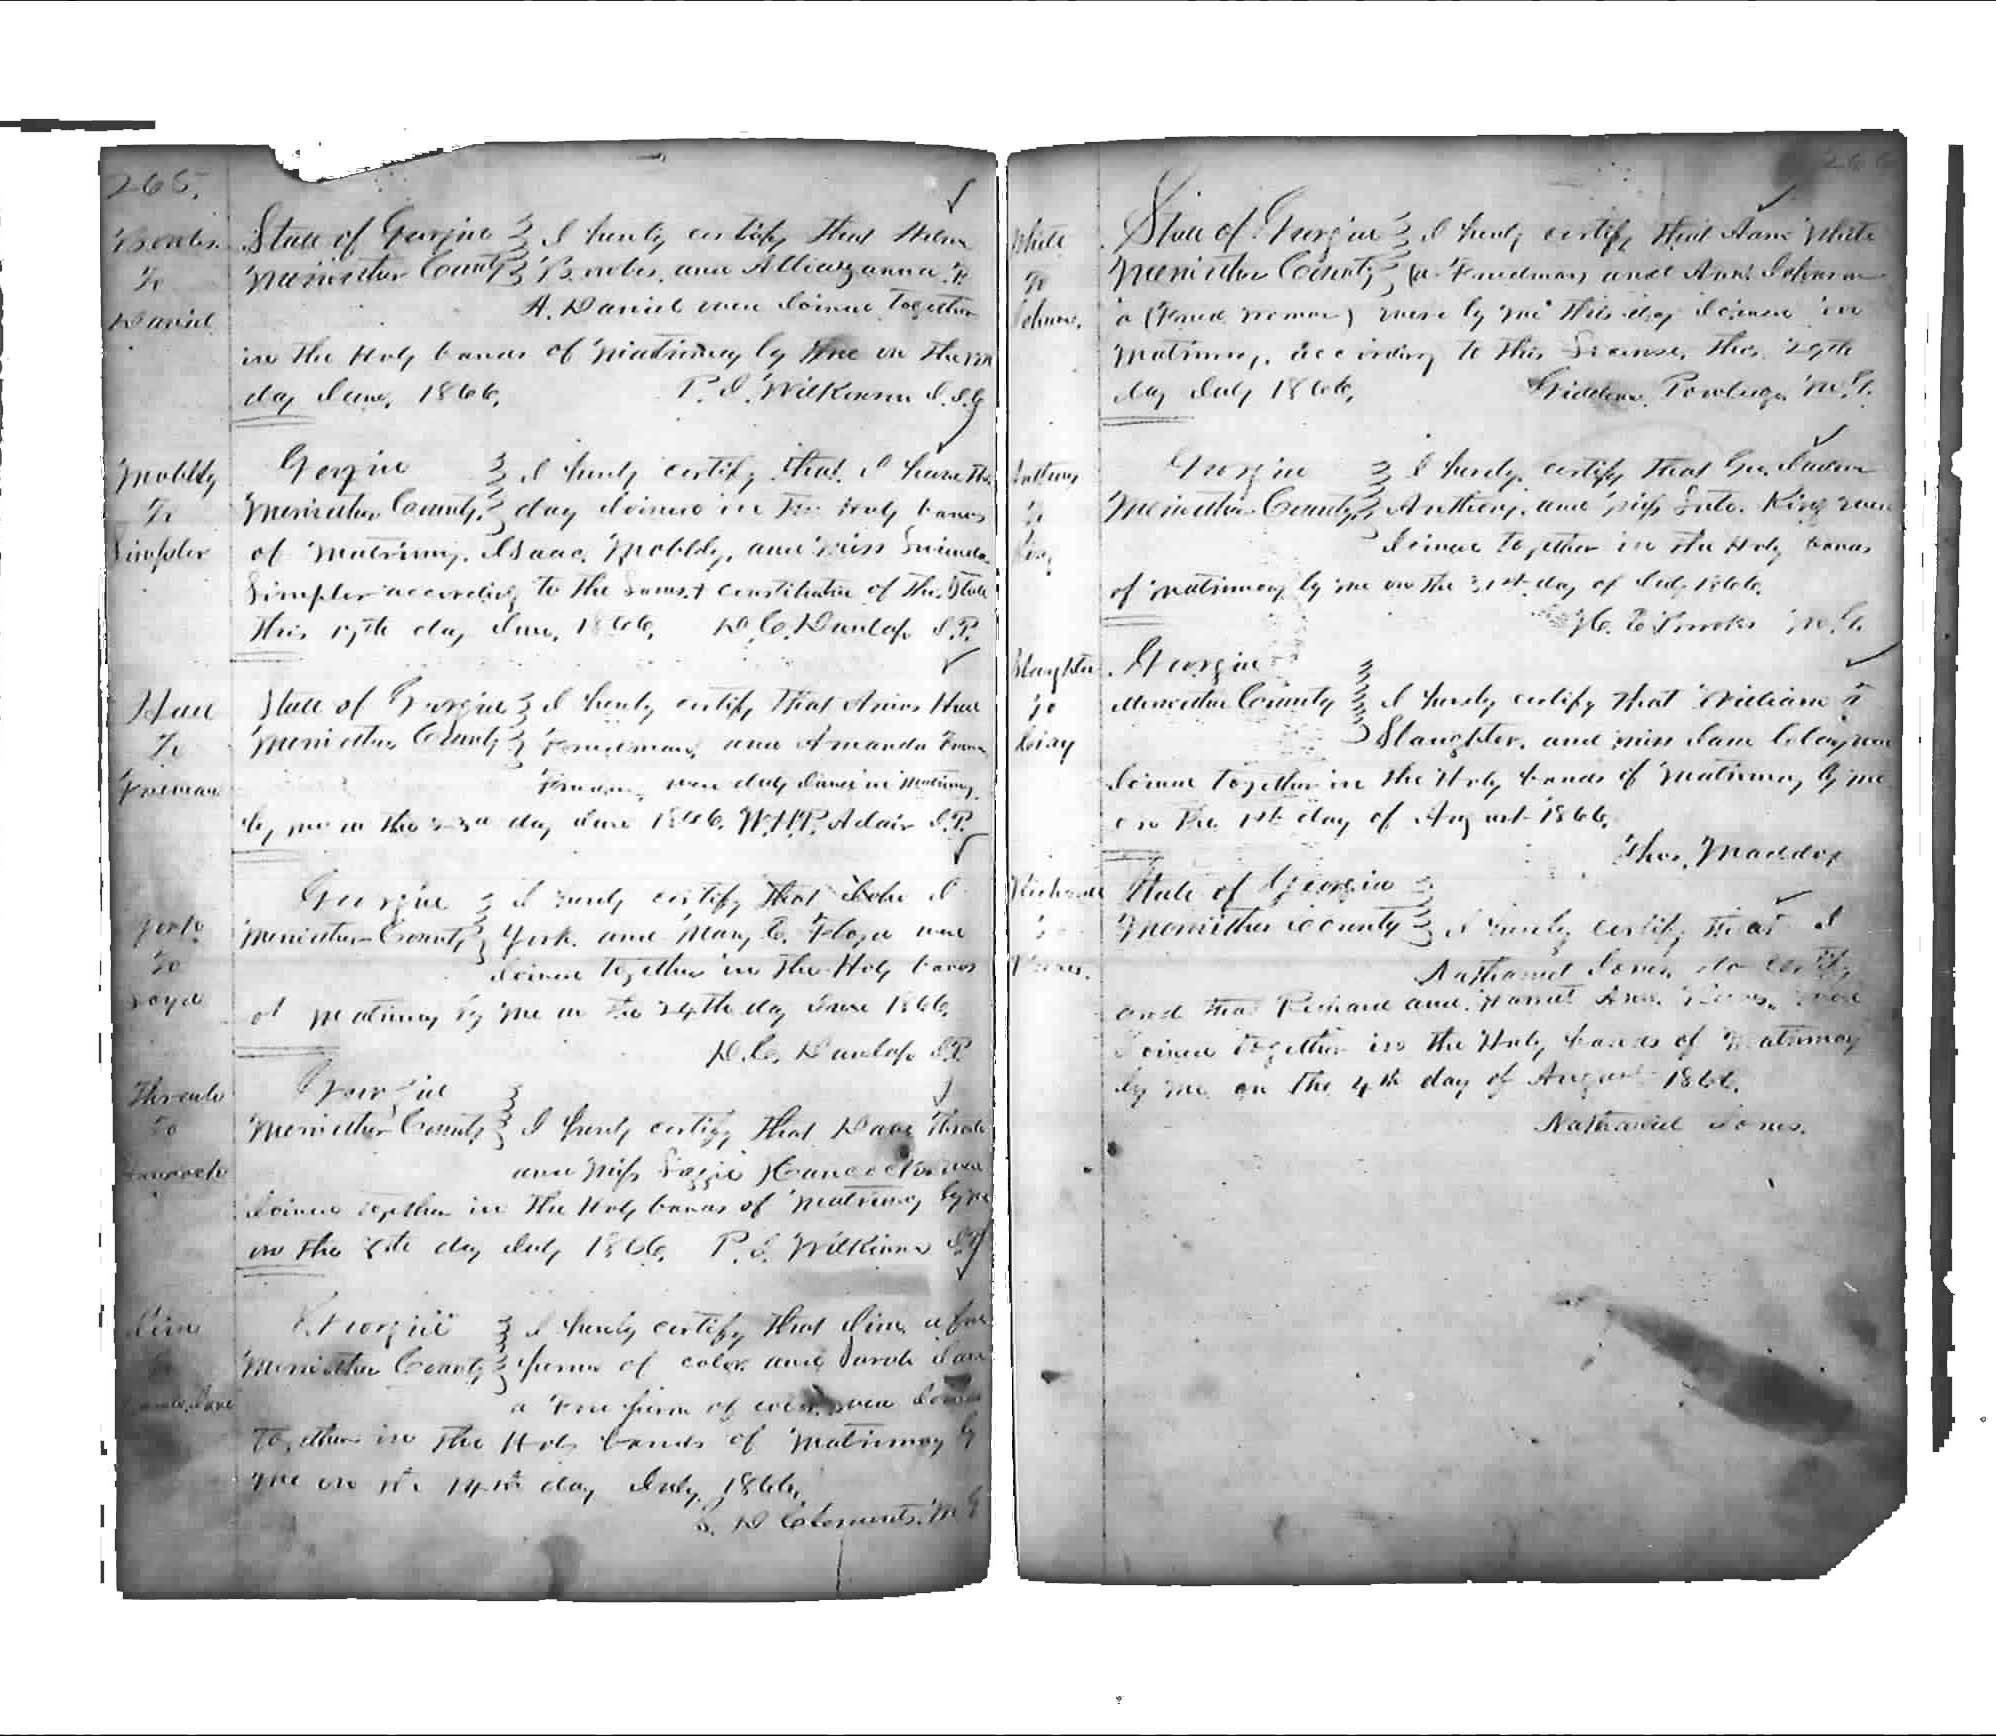 265.
State of Georgia } I hereby certify that
Meriwether County } and
A. Daniel were Joined together
Daniel
To
in the Holy bands of Matrimony by me on the
day June, 1866. P. S. Wilkinson
Mobldy
To
Simpler
Georgia } I hereby certify that I have this
Meriwether County. } day Joined in the Holy bands
of Matrimony, Isaac Mobldy, and Miss
Simpler according to the Laws & constitution of the State
this 17th day June, 1866. D. C. Dunlap J.P.
To
Freeman
State of Georgia } I hereby certify that
Meriwether County } Freedman and Amanda
were duly Joined in Matrimony
by me on the 23rd day June 1866. W.H.P. Adair J.P.
York
To
Georgia } I hereby certify that John
Meriwether County } York and Mary E. Floyd were
Joined together in the Holy bands
of Matrimony by me on the 24th day June 1866.
D. C. Dunlap J.P.
To
Georgia
Meriwether County } I hereby certify that Dave
and Miss Lizzie Hancock were
Joined together in the Holy bands of Matrimony by me
on the day July 1866. P. S. Wilkinson
Jim
To
Sarah Jane
Georgia } I hereby certify that Jim a free
Meriwether County } person of color and Sarah Jane
a free person of color were Joined
together in the Holy bands of Matrimony by
me on the 14th day July, 1866.
D Clements. M G
266
White
To
Johnson.
State of Georgia } I hereby certify that White
Meriwether County } (a Freedman) and Ann Johnson
a (freed woman) were by me this day Joined in
Matrimony, according to this License, this 29th
day July 1866. M.G.
Anthony
To
King
Georgia } I hereby certify that Geo.
Meriwether County } Anthony, and Miss King were
Joined together in the Holy bands
of Matrimony by me on the 31st day of July 1866.
M.G.
Slaughter
To
Georgia
Meriwether County } I hereby certify that William
Slaughter, and Miss Jane were
Joined together in the Holy bands of Matrimony by me
on the 1st day of August 1866.
Thos. Maddox
Richard
To
State of Georgia
Meriwether County } I hereby certify that I
Nathaniel Jones do certify
and that Richard and Harriet Ann were
Joined together in the Holy bands of Matrimony
by me on the 4th day of August 1866.
Nathaniel Jones.